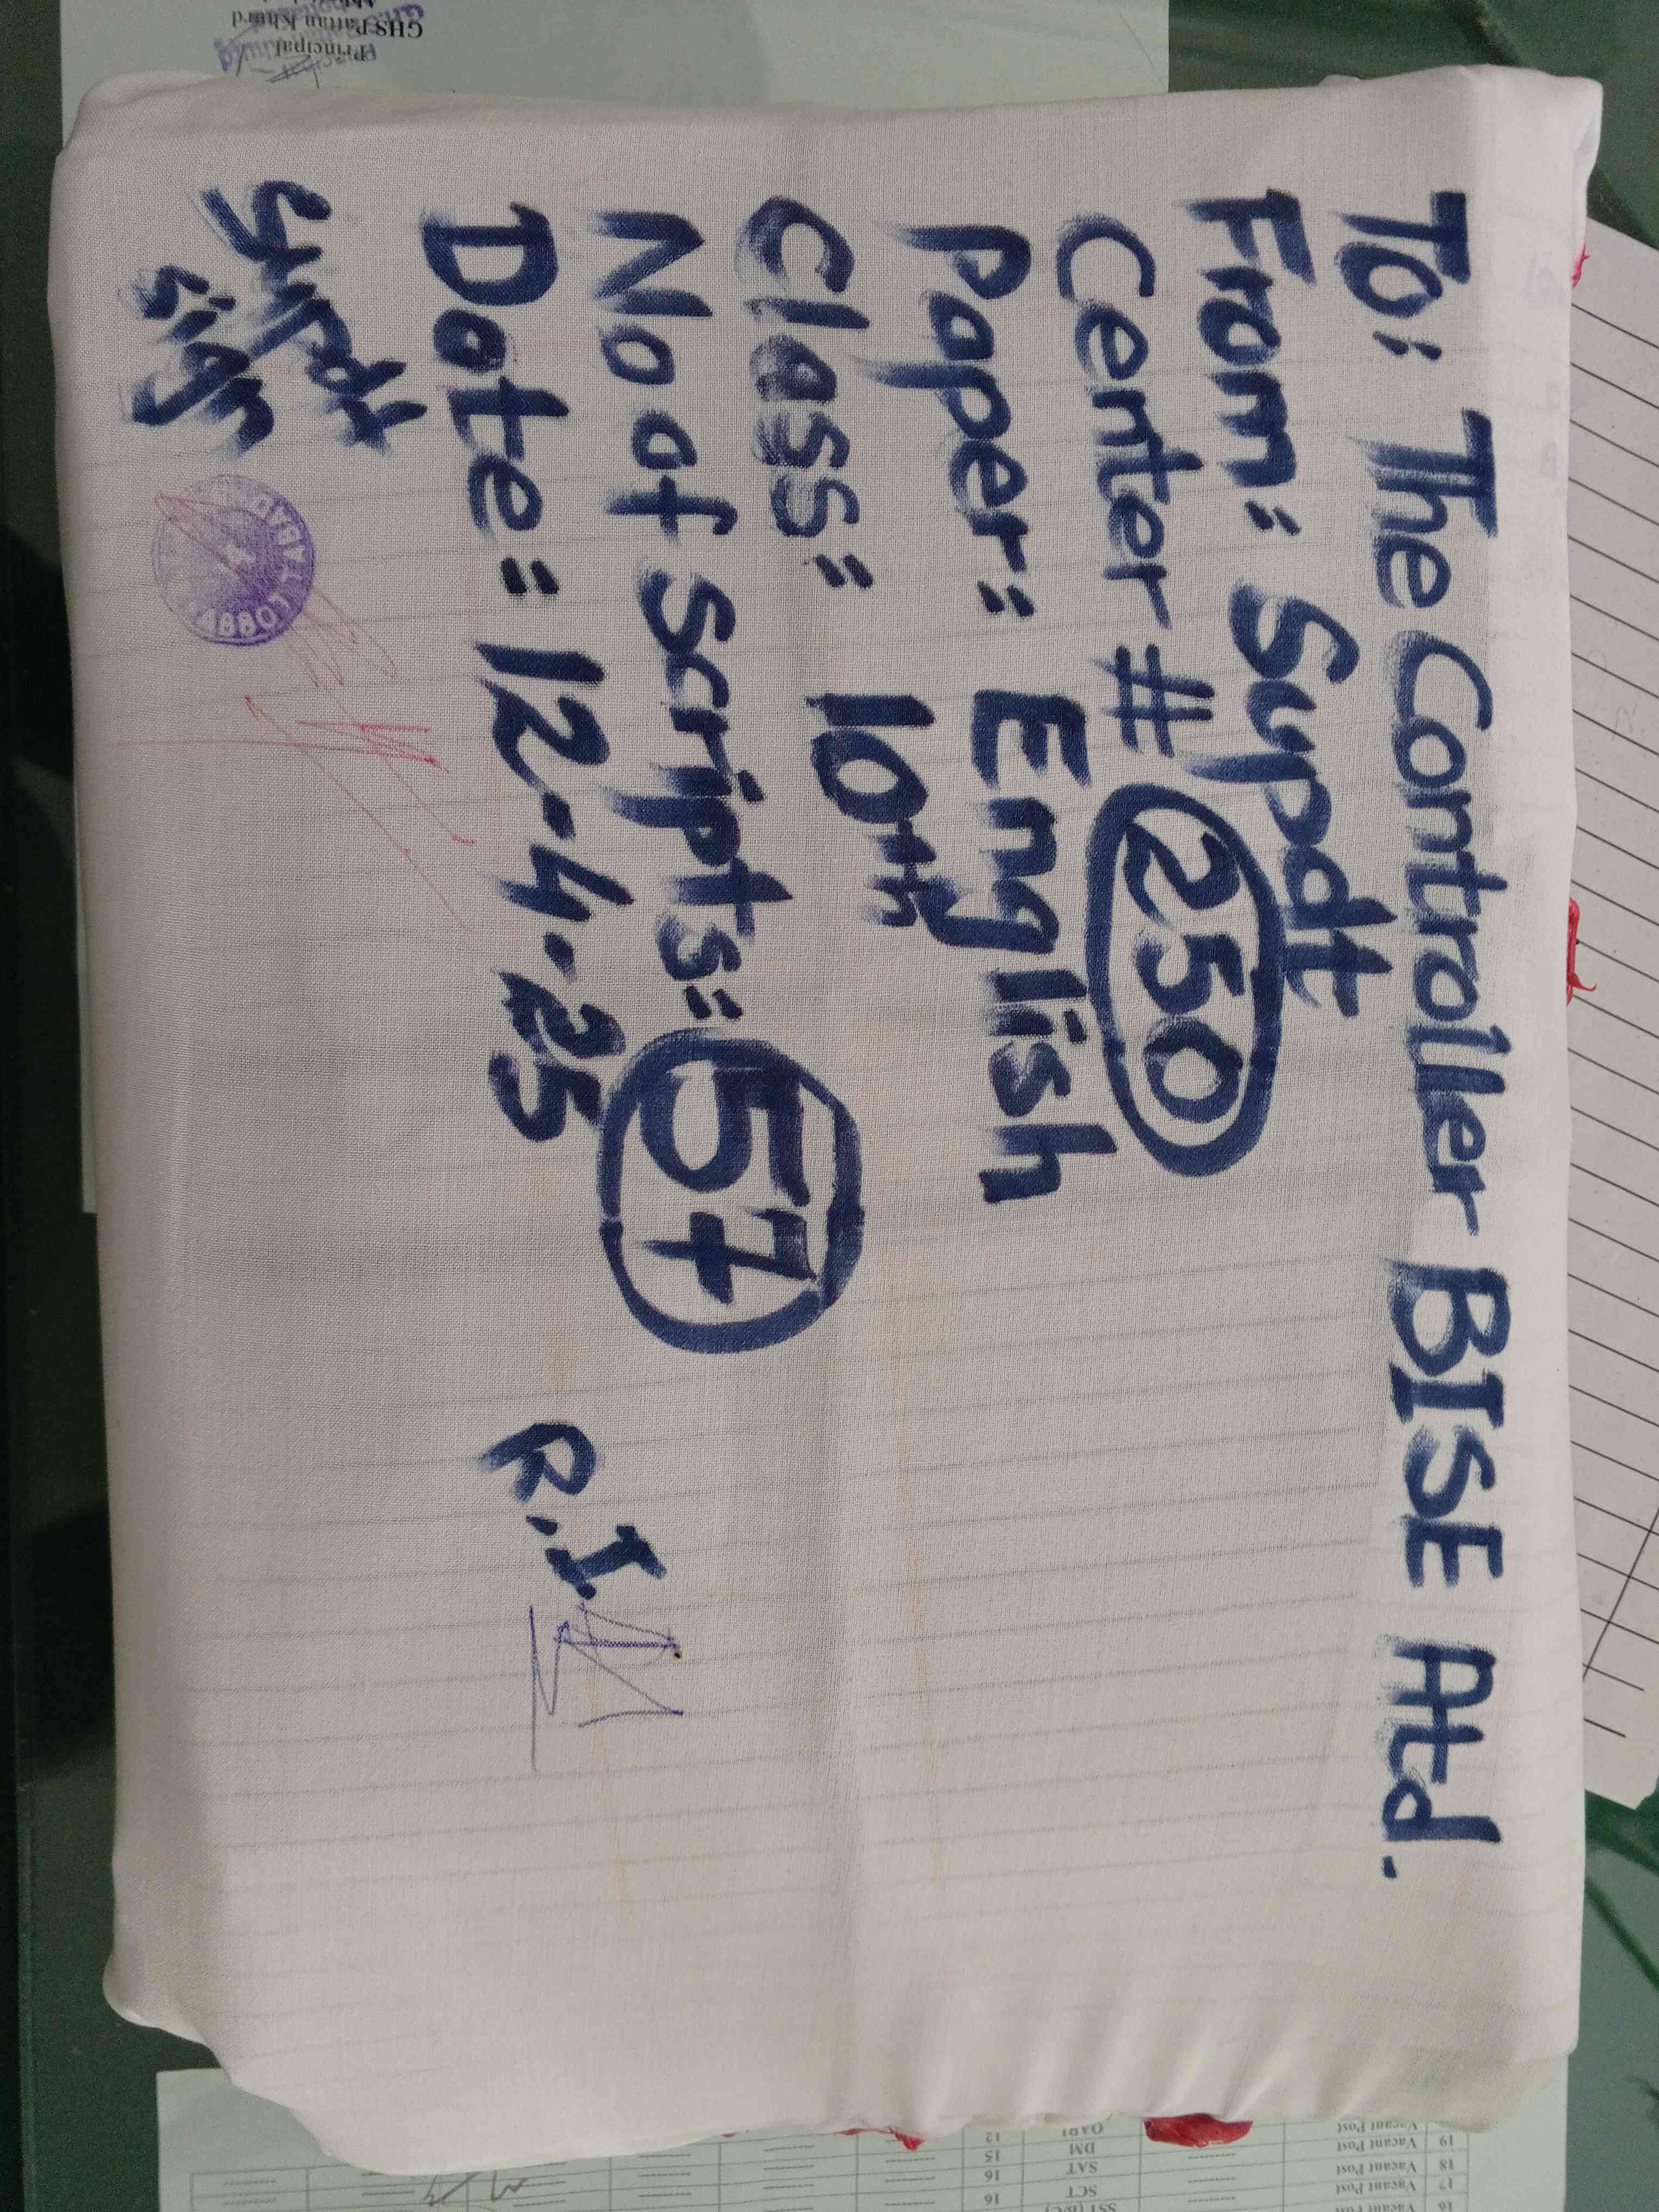 To: The Controller BISE Atd.
From: Supdt
Center # 250
Paper: English
Class: 10th
No of scripts: 57
Date: 12-4-25
Supdt
sign
R.I
ABBOTTABAD
Principal
GHS Pattan Khurd
19 Vacant Post QARI 12
18 Vacant Post DM 15
17 Vacant Post SAT 16
16 Vacant Post SCT 16